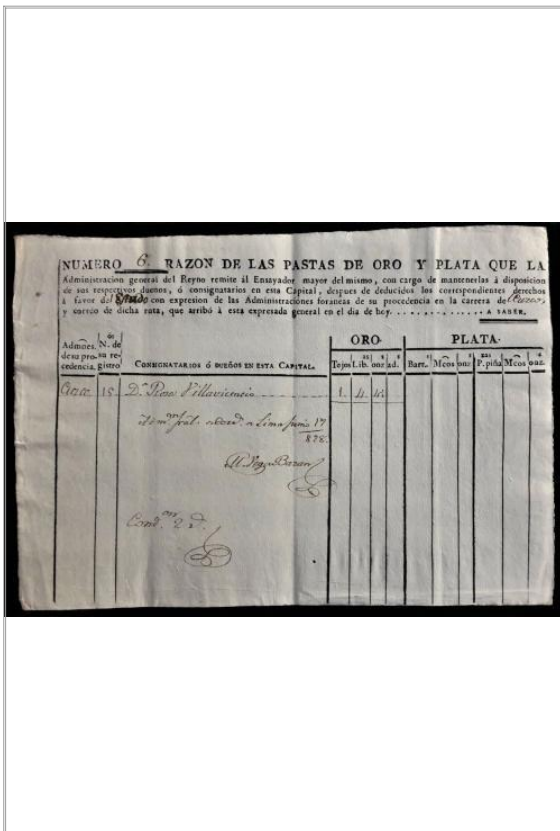 NUMERO 6. RAZON DE LAS PASTAS DE ORO Y PLATA QUE LA
Administracion general del Reyno remite ál Ensayador mayor del mismo, con cargo de mantenerlas à disposicion
de sus respectivos dueños, ó consignatarios en esta Capital, despues de deducidos los correspondientes derechos
à favor del Estado con expresion de las Administraciones foraneas de su procedencia en la carrera de
y correo de dicha ruta, que arribó à esta expresada general en el dia de hoy................ A SABER.
ORO. PLATA.
Admñes. de su procedencia. N. de su registro CONSIGNATARIOS ó DUEÑOS EN ESTA CAPITAL. Tejos Lib. onz ad. Barr. Mc̃os onz P. piña Mc̃os onz.
15 Dn. Villavicencio 1. 4. 4.
Lima Junio 17
828.
Bazan
2 d.